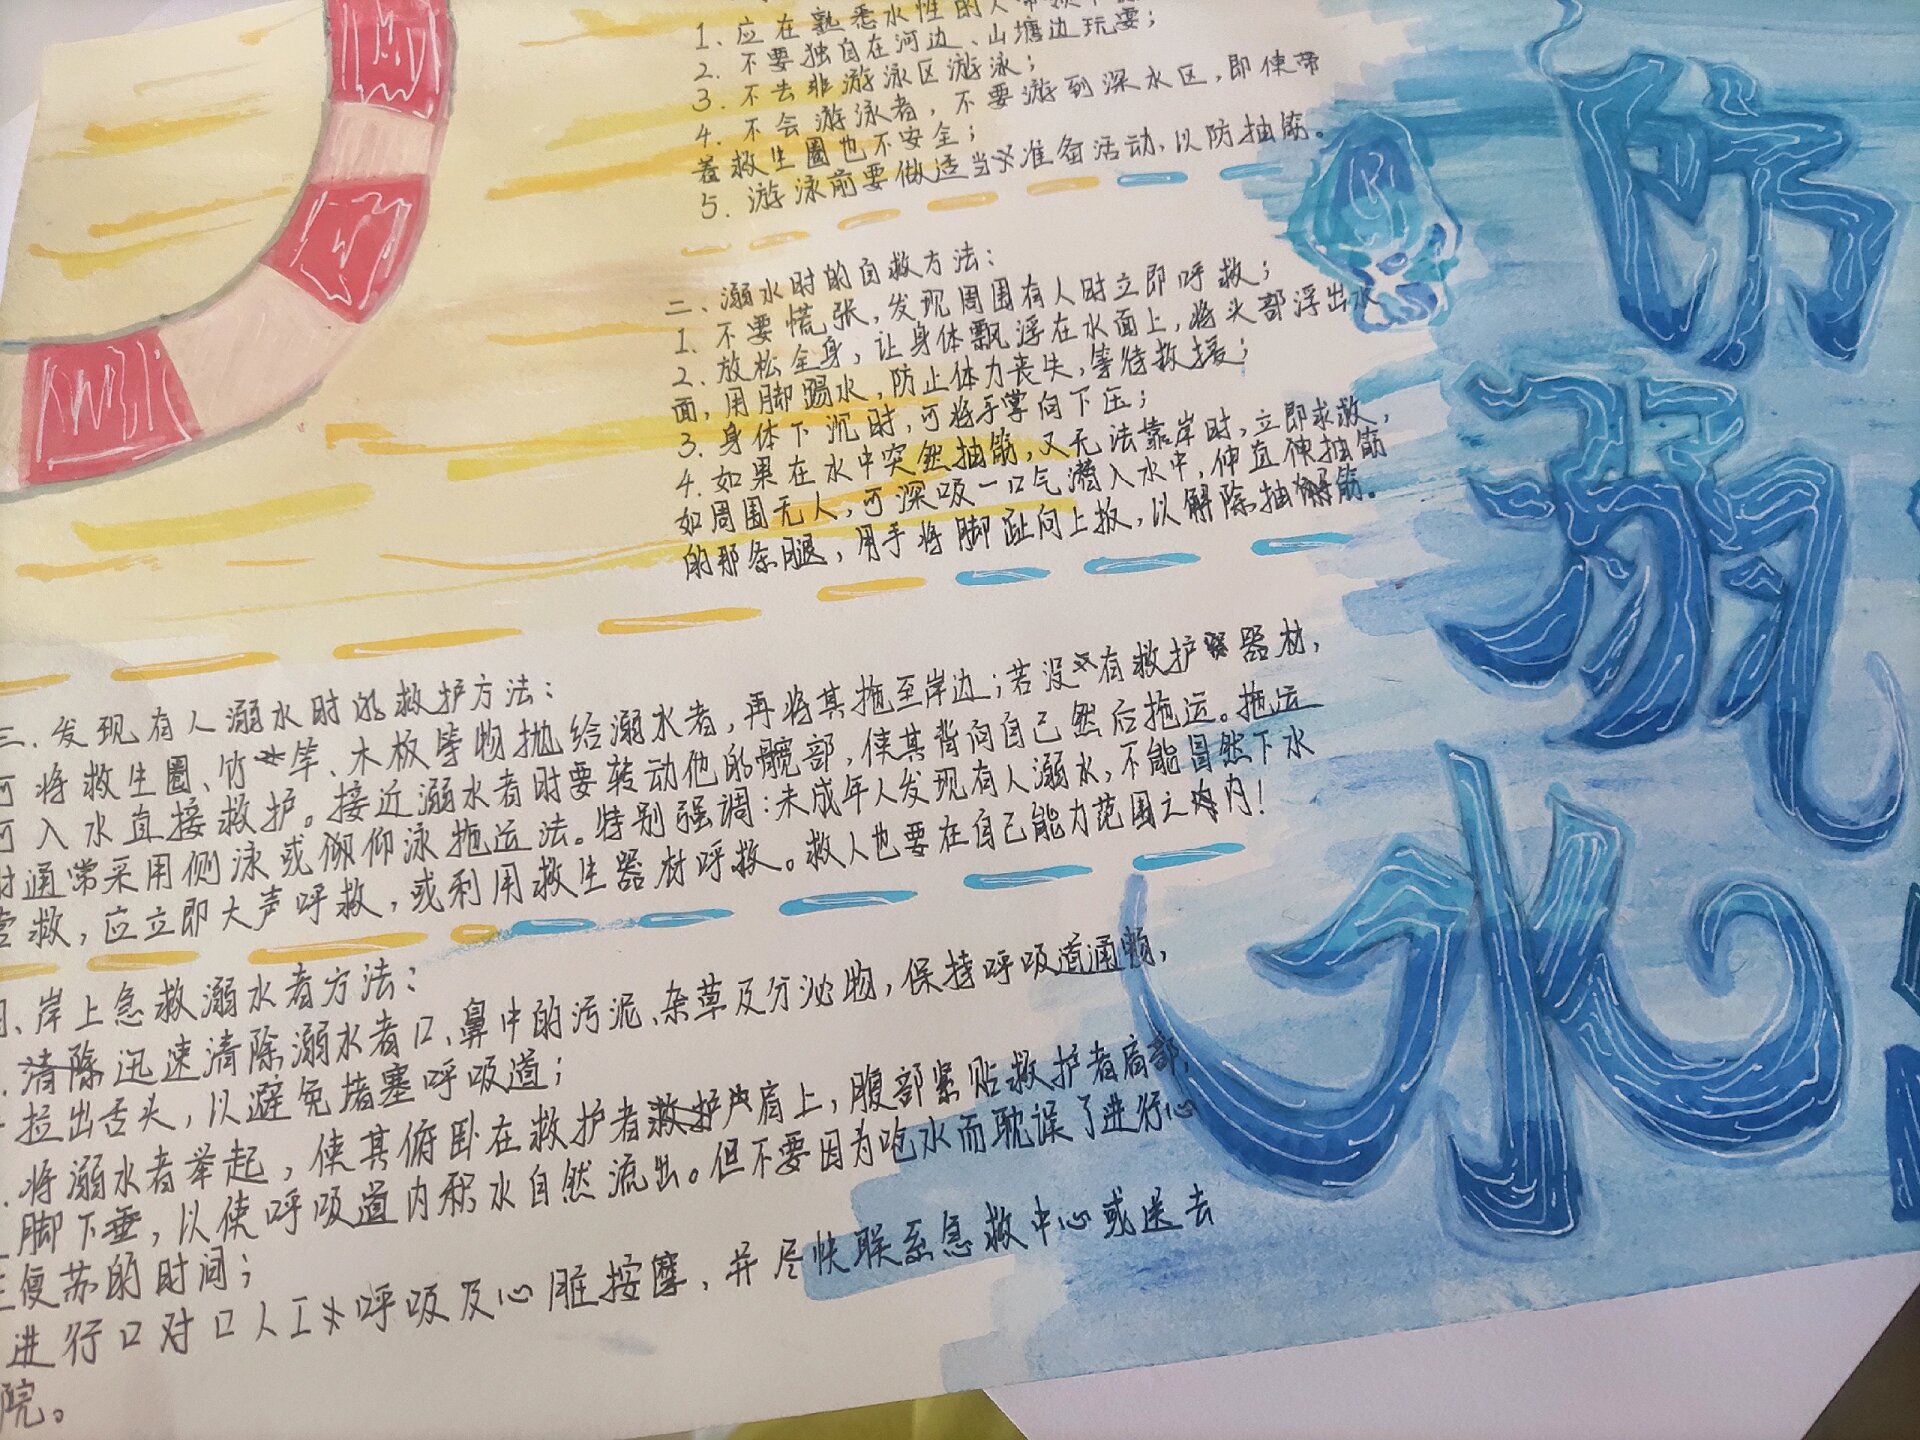 1. 应在熟悉水性的人带领下
2. 不要独自在河边、山塘边玩耍；
3. 不去非游泳区游泳；
4. 不会游泳者，不要游到深水区，即使带
着救生圈也不安全；
5. 游泳前要做适当准备活动，以防抽筋。
二、溺水时的自救方法：
1. 不要慌张，发现周围有人时立即呼救；
2. 放松全身，让身体飘浮在水面上，将头部浮出水
面，用脚踢水，防止体力丧失，等待救援；
3. 身体下沉时，可将手掌向下压；
4. 如果在水中突然抽筋，又无法靠岸时，立即求救，
如周围无人，可深吸一口气潜入水中，伸直伸抽筋
的那条腿，用手将脚趾向上扳，以解除抽筋。
三、发现有人溺水时的救护方法：
可将救生圈、竹竿、木板等物抛给溺水者，再将其拖至岸边；若没有救护器材，
可入水直接救护。接近溺水者时要转动他的髋部，使其背向自己然后拖运。拖运
时通常采用侧泳或仰泳拖运法。特别强调：未成年人发现有人溺水，不能冒然下水
营救，应立即大声呼救，或利用救生器材呼救。救人也要在自己能力范围之内！
四、岸上急救溺水者方法：
清除迅速清除溺水者口、鼻中的污泥、杂草及分泌物，保持呼吸道通畅，
拉出舌头，以避免堵塞呼吸道；
将溺水者举起，使其俯卧在救护者救护肩上，腹部紧贴救护者肩部，
脚下垂，以使呼吸道内积水自然流出。但不要因为呛水而耽误了进行心
复苏的时间；
进行口对口人工呼吸及心脏按摩，并尽快联系急救中心或送去
院。
防
溺
水